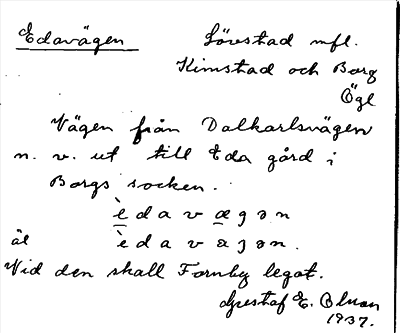 Edavägen Lövstad mfl.
Kimstad och Borg
Ögl
Vägen från Dalkarlsvägen
n. v. ut till Eda gård i
Borgs socken.
è d a v æ g ə n
äl è d a v a j ə n.
Vid den skall Fornby legat.
Gustaf E.
1937.